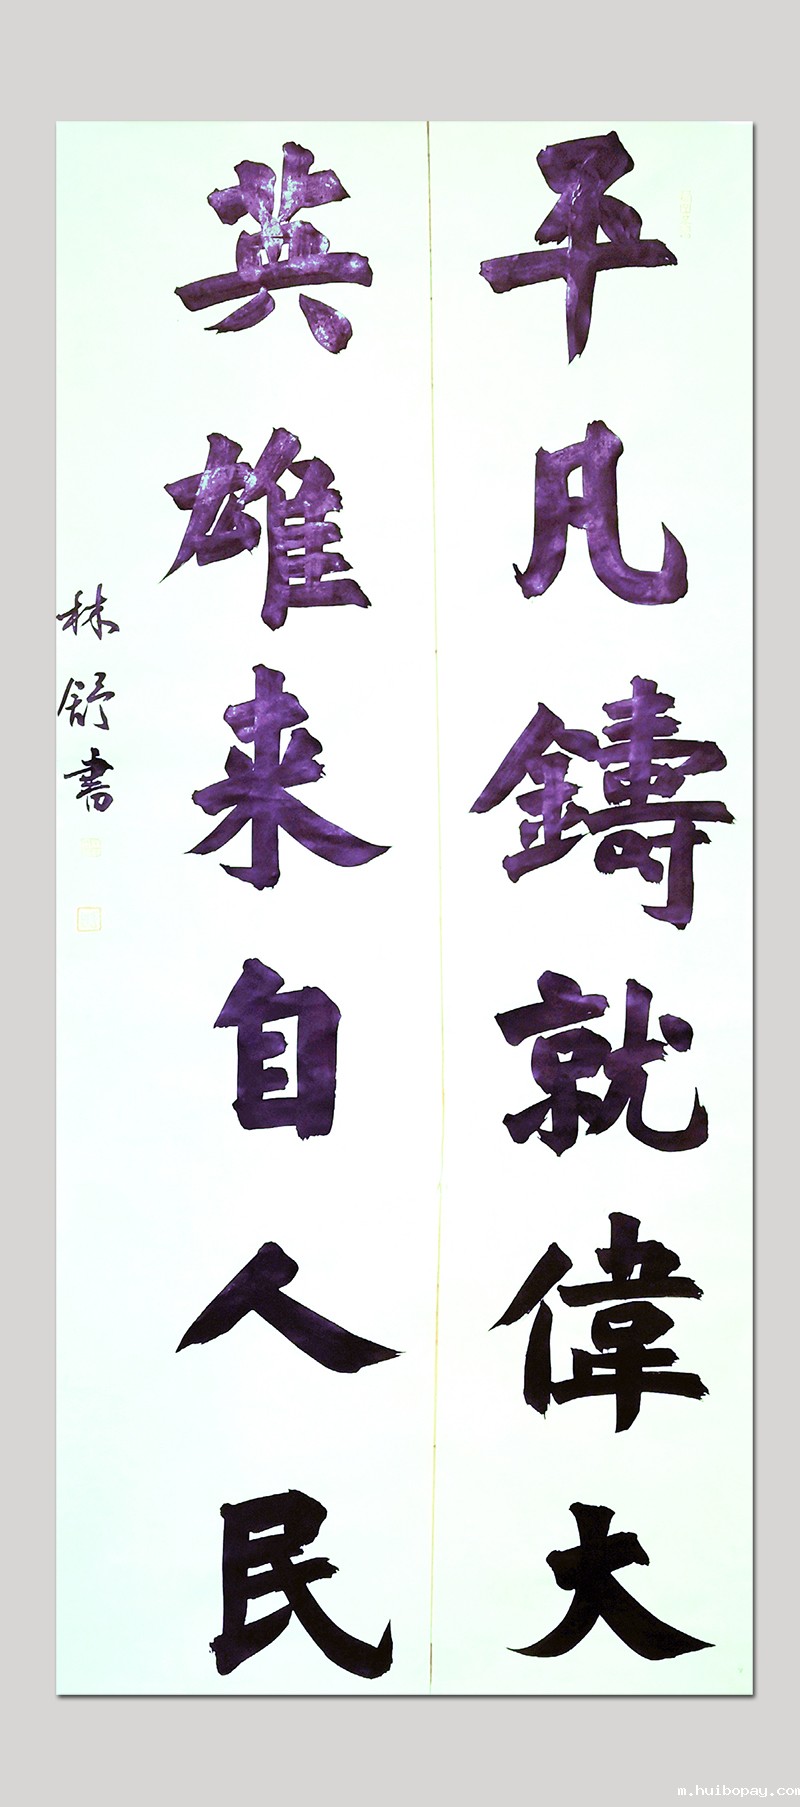 平凡鑄就偉大
英雄来自人民
林舒書
m.huibopay.com